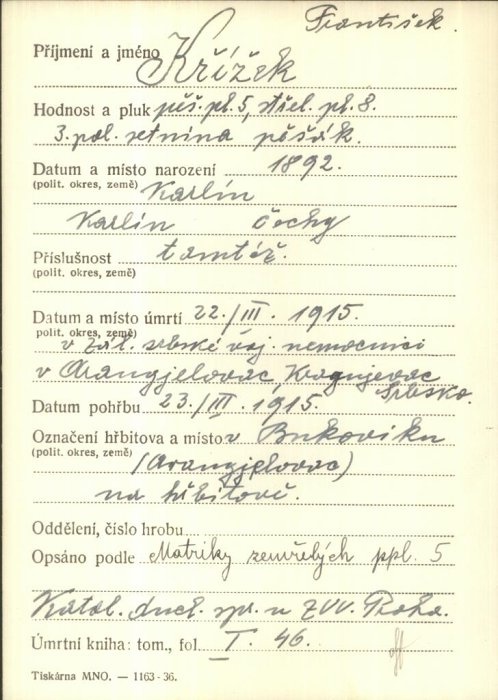 František.
Příjmení a jméno Křížek
Hodnost a pluk pěš. pl. 5, střel. pl. 8.
3. pol. setnina pěšák.
Datum a místo narození 1892.
(polit. okres, země) Karlín
Karlín čechy
Příslušnost tamtéž.
(polit. okres, země)
Datum a místo úmrtí 22./III. 1915.
polit. okres, země)
v zál. srbské voj. nemocnici
v Arangjelovac, Kragujevac
Srbsko.
Datum pohřbu 23./III. 1915.
Označení hřbitova a místo v Bukoviku
(polit. okres, země)
(Arangjelovac)
na hřbitově.
Oddělení, číslo hrobu
Opsáno podle Matriky zemřelých ppl. 5
Katol. duch. spr. u ZVV. Praha.
Úmrtní kniha: tom., fol. I. 46.
Tiskárna MNO. — 1163-36.